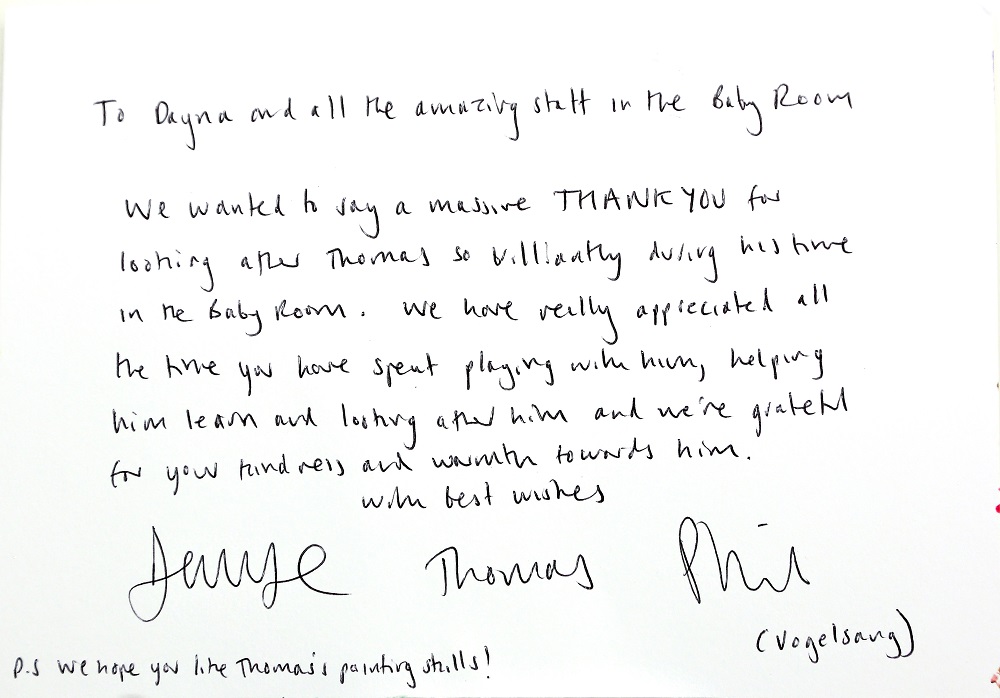 To Dayna and all the amazing staff in the Baby Room
We wanted to say a massive THANK YOU for
looking after Thomas so brilliantly during his time
in the Baby Room. We have really appreciated all
the time you have spent playing with him, helping
him learn and looking after him and we're grateful
for your kindness and warmth towards him.
with best wishes
Thomas Phil
(Vogelsang)
P.S We hope you like Thomas's painting skills!